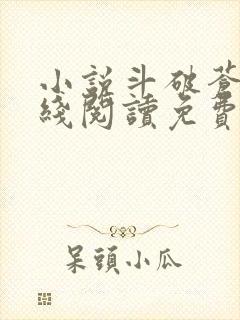 小說斗破蒼
綫閱讀免費
呆頭小瓜